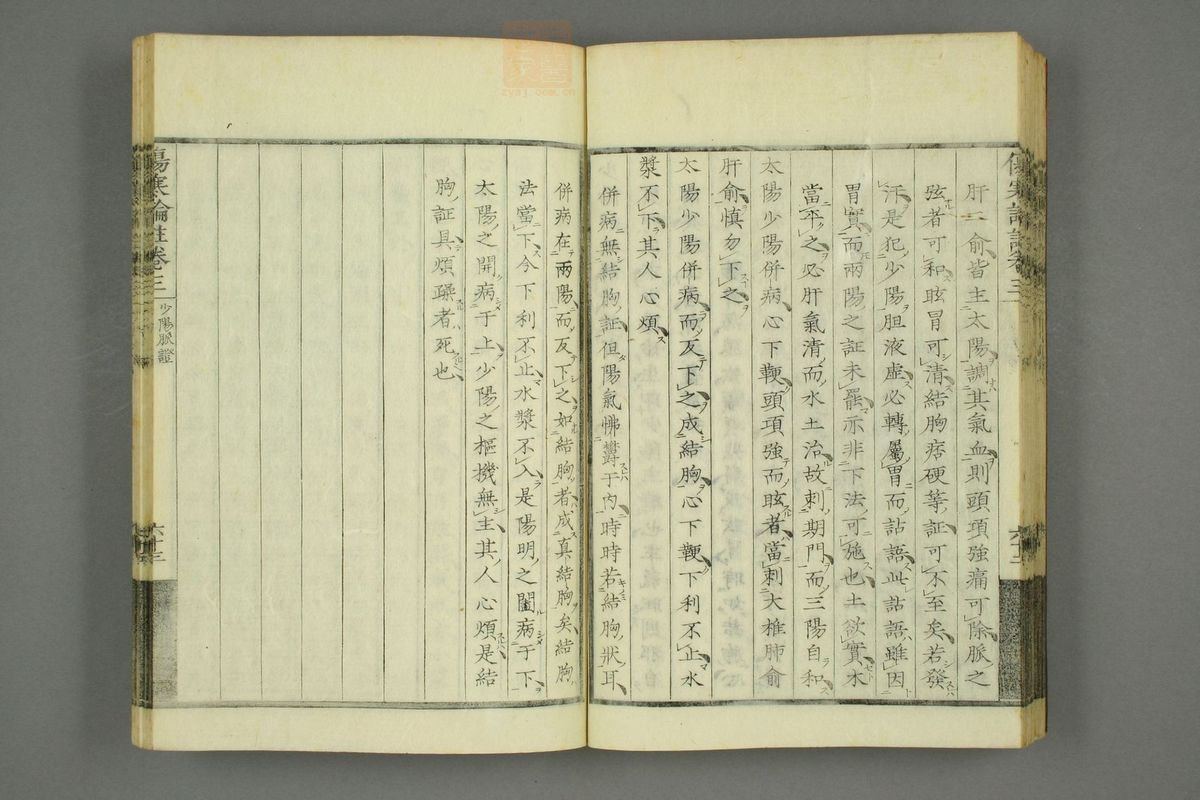 肝二俞皆主太陽調其氣血則頭項強痛可除脈之
弦者可和眩冒可清結胸痞硬等証可不至矣若發
汗是犯少陽胆液虛必轉屬胃而詀語此詀語雖因
胃實而兩陽之証未罷亦非下法可施也土欲實木
當平之必肝氣清而水土治故刺期門而三陽自和
太陽少陽併病心下鞕頭項強而眩者當刺大椎肺俞
肝俞慎勿下之
太陽少陽併病而反下之成結胸心下鞕下利不止水
漿不下其人心煩
併病無結胸証但陽氣怫欝于內時時若結胸狀耳
併病在兩陽而反下之如結胸者成真結胸矣結胸
法當下今下利不止水漿不入是陽明之闔病于下
太陽之開病于上少陽之樞機無主其人心煩是結
胸証具煩躁者死也
傷寒論註卷三
少陽脈證
六十三